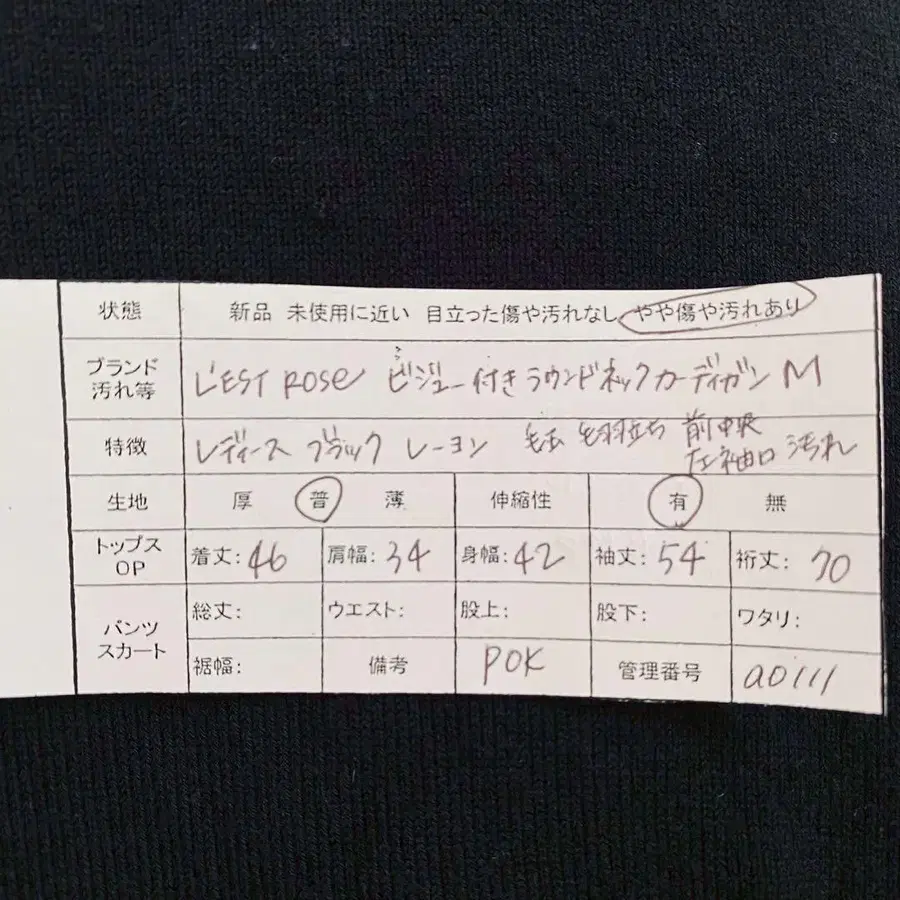 状態 新品 未使用に近い 目立った傷や汚れなし やや傷や汚れあり
ブランド 汚れ等 L'EST ROSE ビジュー付きラウンドネックカーディガン M
特徴 レディース ブラック レーヨン 毛玉 毛羽立ち 前中央
左袖口 汚れ
生地 厚 普 薄 伸縮性 有 無
トップス OP 着丈:46 肩幅:34 身幅:42 袖丈:54 裄丈:70
パンツ スカート 総丈: ウエスト: 股上: 股下: ワタリ:
裾幅: 備考 POK 管理番号 a0111